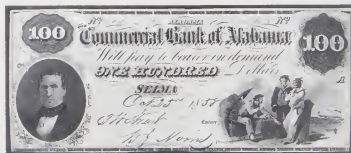 No ALABAMA No
100 Commercial Bank of Alabama 100
Will pay to bearer on demand
ONE HUNDRED Dollars
SELMA A
Oct 25th 1858
Cashier